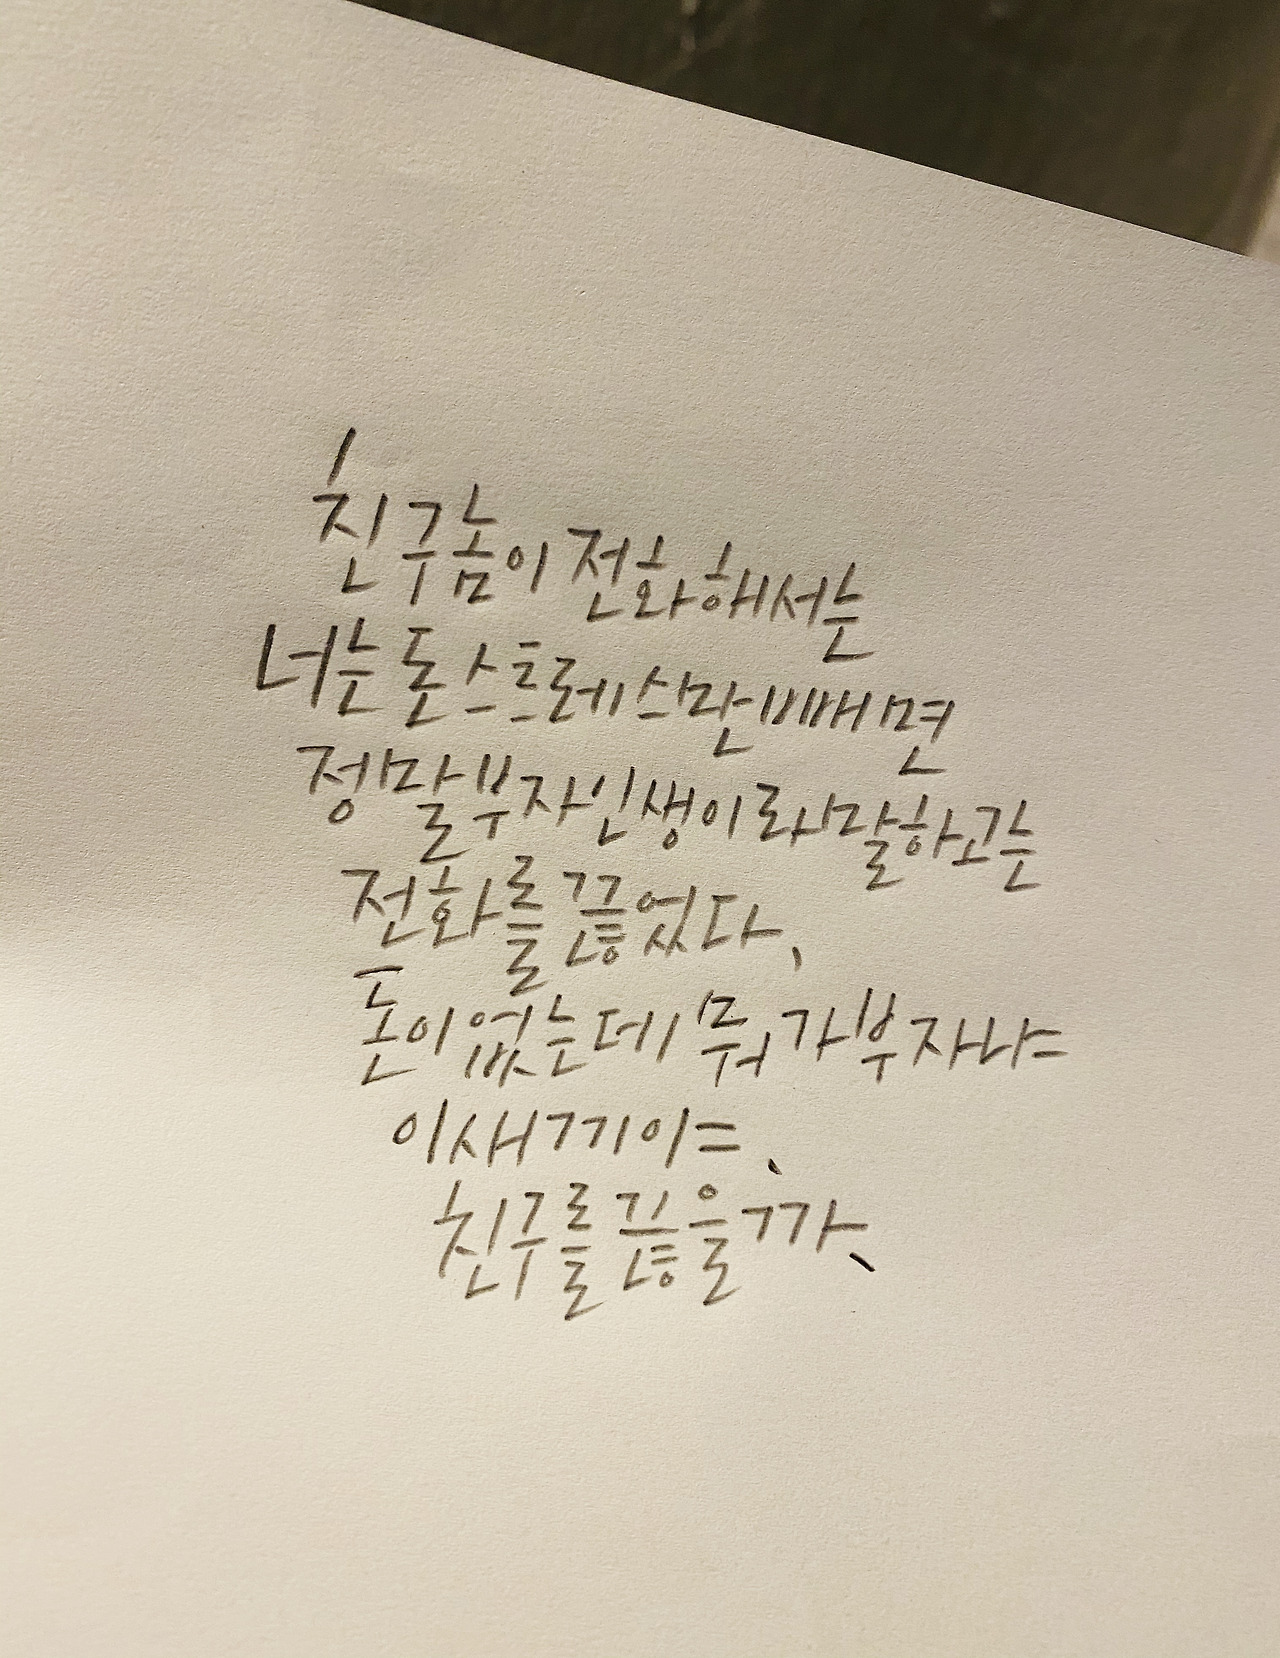 친구놈이 전화해서는
너는 돈 스트레스만 빼면
정말 부자인생이라 말하고는
전화를 끊었다.
돈이 없는데 뭐가 부자냐=
이새끼야=.
친구를 끊을까.